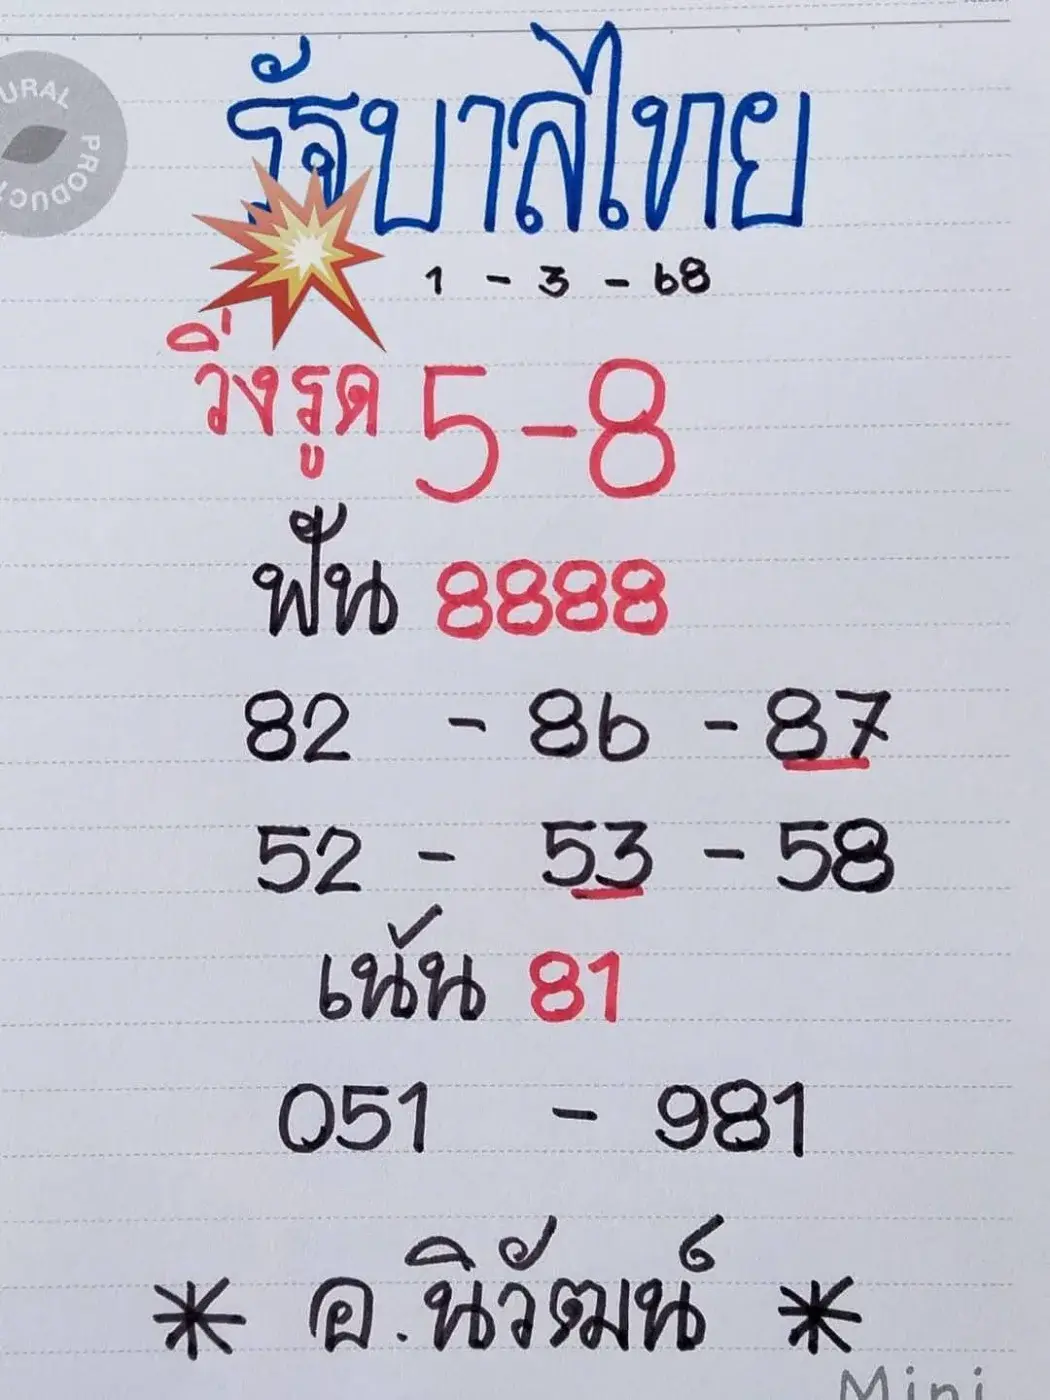 URAL PRODUCT
รัฐบาลไทย
1 - 3 - 68
วิ่งรูด 5-8
ฟัน 8888
82 - 86 - 87
52 - 53 - 58
เน้น 81
051 - 981
* อ.นิวัฒน์ *
Mini